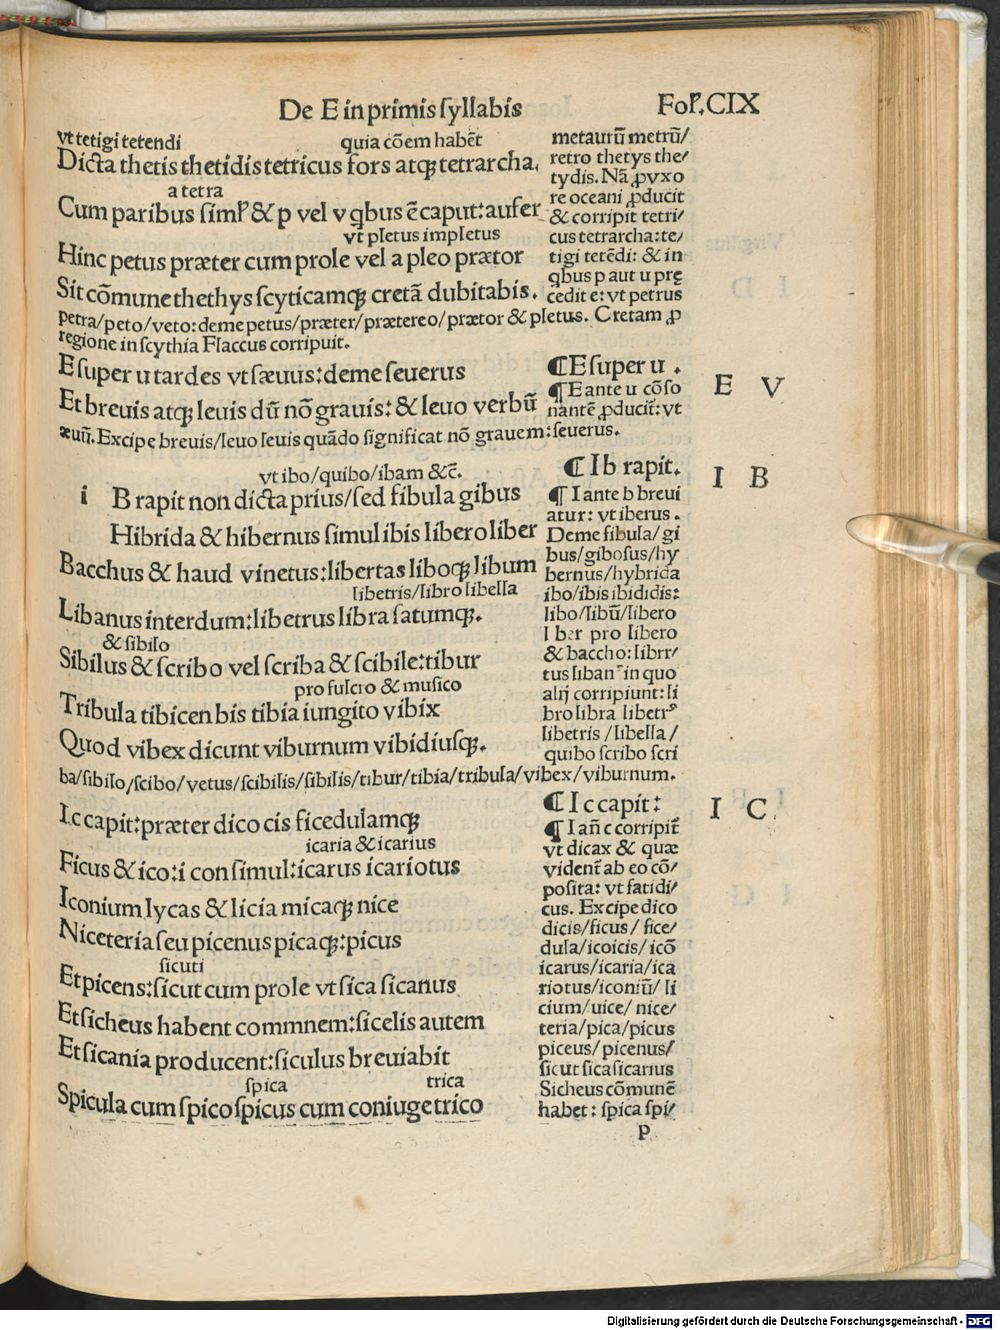 De E in primis ſyllabis
Fol.CIX
vt tetigi tetendi quia cõem habẽt
Dicta thetis thetidis tetricus fors atqꝫ tetrarcha.
a tetra
Cum paribus ſimꝉ & p vel v qbus ẽ caput: aufer
vt pletus impletus
Hinc petus præter cum prole vel a pleo prætor
Sit cõmune thethys ſcyticamqꝫ cretã dubitabis.
petra/peto/veto: deme petus/præter/prætereo/prætor & pletus. Cretam ꝓ
regione in ſcythia Flaccus corripuit.
E ſuper u tardes vt ſæuus: deme ſeuerus
Et breuis atqꝫ leuis dũ nõ grauis: & leuo verbũ
æuũ. Excipe breuis/leuo leuis quãdo ſignificat nõ grauem: ſeuerus.
vt ibo/quibo/ibam &c̃.
i B rapit non dicta prius/ſed fibula gibus
Hibrida & hibernus ſimul ibis libero liber
Bacchus & haud vinetus: libertas liboqꝫ libum
libetris/libro libella
Libanus interdum: libetrus libra ſatumqꝫ.
& ſibilo
Sibilus & ſcribo vel ſcriba & ſcibile: tibur
pro fulcro & muſico
Tribula tibicen bis tibia iungito vibix
Quod vibex dicunt viburnum vibidiuſqꝫ.
ba/ſibilo/ſcibo/vetus/ſcibilis/ſibilis/tibur/tibia/tribula/vibex/viburnum.
I c capit: præter dico cis ficedulamqꝫ
icaria & icarius
Ficus & ico: i con ſimul: icarus icariotus
Iconium lycas & licia micaqꝫ nice
Niceteria ſeu picenus picaqꝫ: picus
ſicuti
Et picens: ſicut cum prole vt ſica ſicanus
Et ſicheus habent commnem: ſicelis autem
Et ſicania producent: ſiculus breuiabit
ſpica trica
Spicula cum ſpico ſpicus cum coniuge trico
metaurũ metrũ/
retro thetys the/
tydis. Nã ꝓ vxo
re oceani ꝓducit
& corripit tetri/
cus tetrarcha: te/
tigi tetẽdi: & in
qbus p aut u prę
cedit e: vt petrus
¶ E ſuper u .
¶ E ante u cõſo
nantẽ ꝓducit̃: vt
¶ I b rapit.
¶ I ante b breui
atur: vt iberus .
Deme fibula/gi
bus/giboſus/hy
bernus/hybrida
ibo/ibis ibididis:
libo/libũ/libero
l ber pro libero
& baccho: librr/
tus liban⁹ in quo
alij corripiunt: li
bro libra libetr⁹
libetris /libella /
quibo ſcribo ſcri
¶ I c capit :
¶ I añ c corripit̃
vt dicax & quæ
vident̃ ab eo cõ/
poſita: vt fatidi/
cus. Excipe dico
dicis/ficus / fice/
dula/icoicis/ icõ
icarus/icaria/ica
riotus/iconiũ/ li
cium/uice/ nice/
teria/pica/picus
piceus/picenus/
ſicut ſica ſicarius
Sicheus cõmunẽ
habet : ſpica ſpi/
p
E V
I B
I C
Digitalisierung gefördert durch die Deutsche Forschungsgemeinschaft - DFG